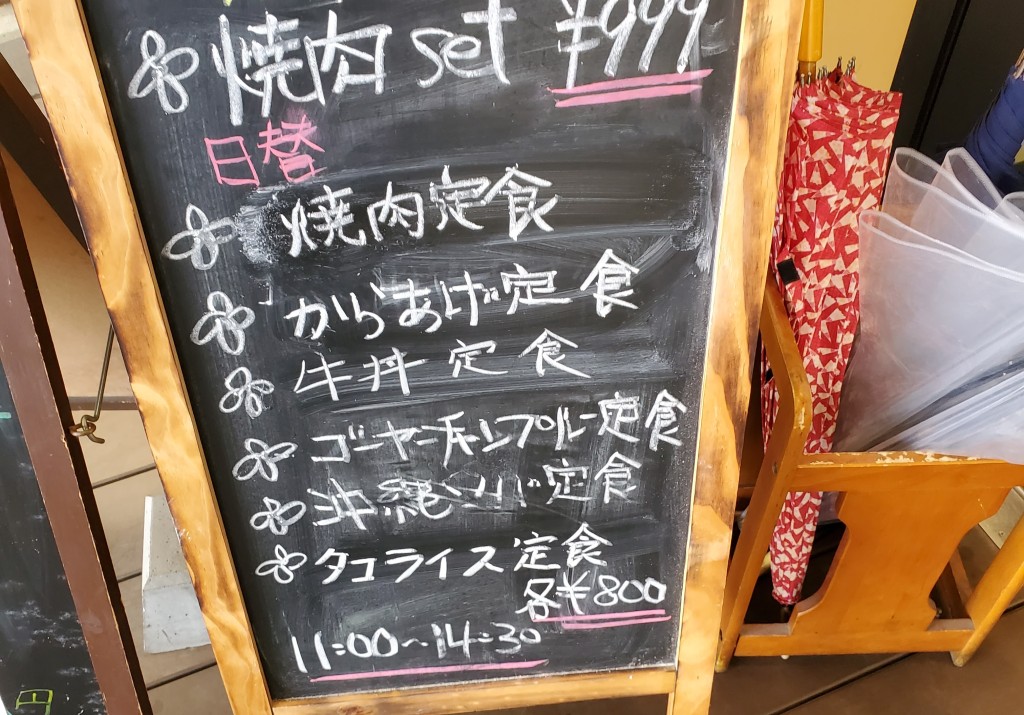 焼肉 set ¥999
日替
焼肉定食
からあげ定食
牛丼定食
ゴーヤーチャンプルー定食
沖縄ソバ定食
タコライス定食
各¥800
11:00~14:30
円